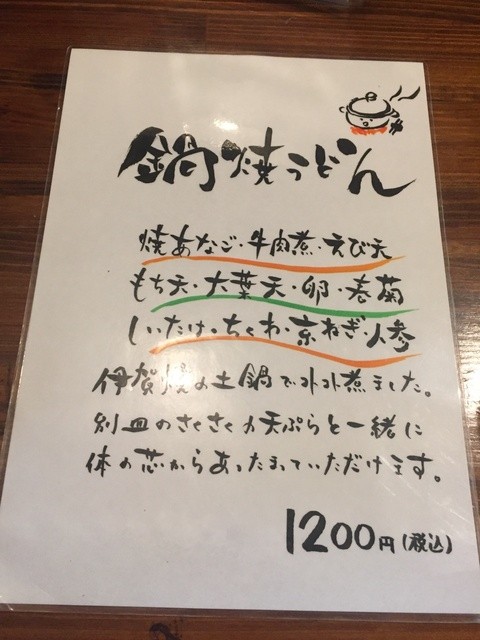 鍋焼うどん
焼あなご・牛肉煮・えび天
もち天・大葉天・卵・春菊
しいたけ・ちくわ・京ねぎ・人参
伊賀焼の土鍋でコトコト煮ました。
別皿のさくさくの天ぷらと一緒に
体の芯からあったまっていただけます。
1200円(税込)